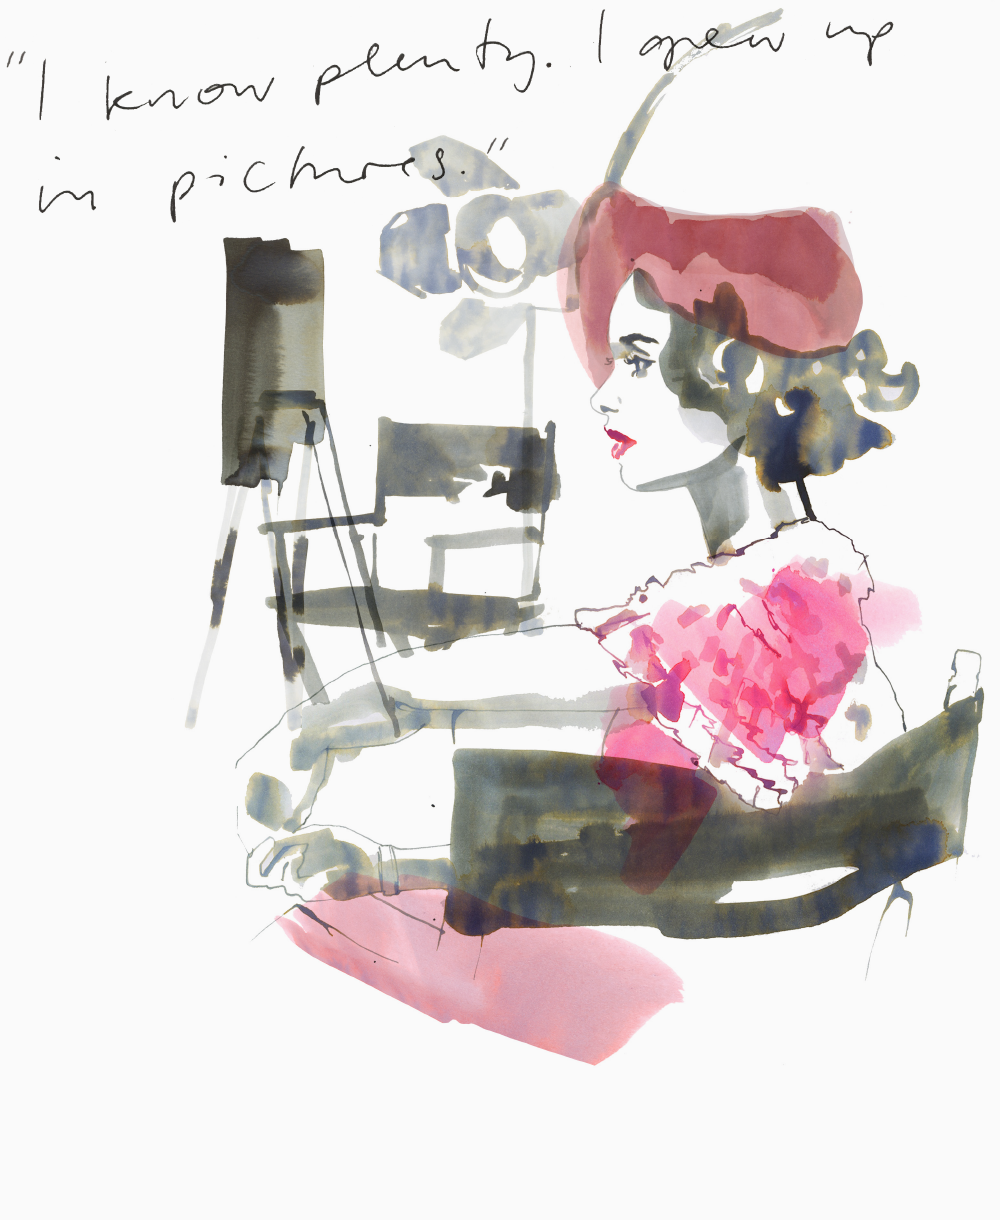 "I know plenty. I grew up
in pictures."